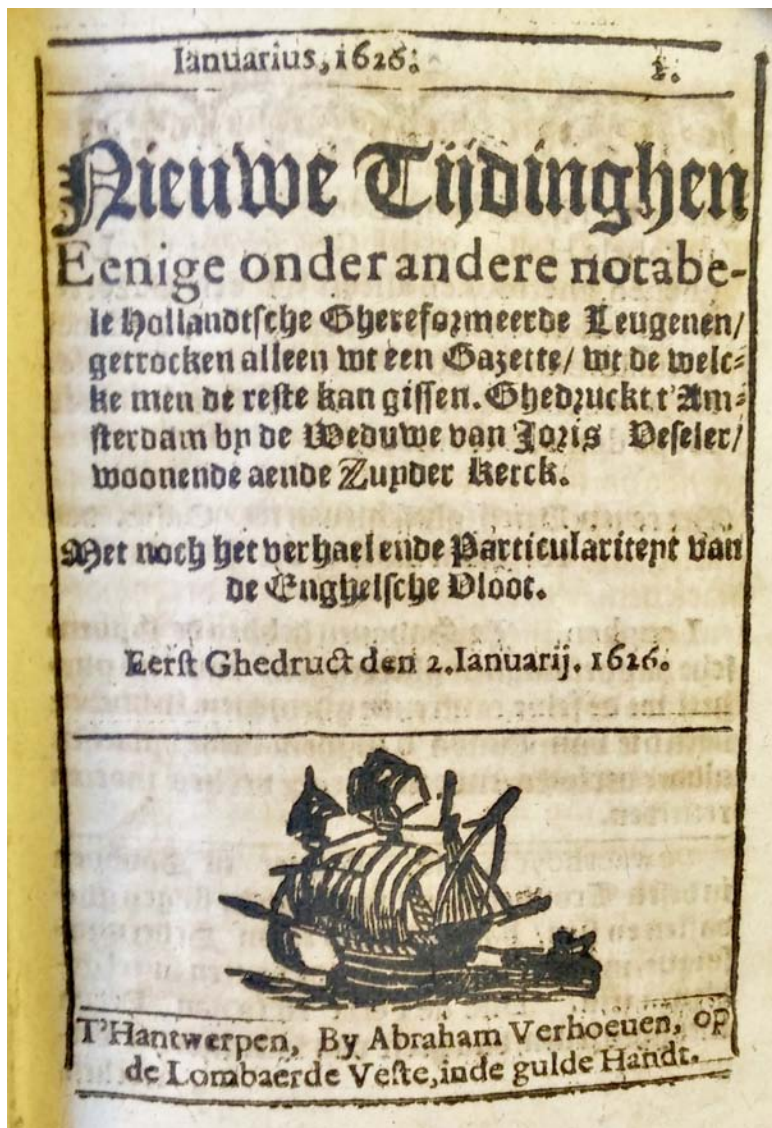 Ianuarius, 1626. 1.
Nieuwe Tijdinghen
Eenige onder andere notabe-
le Hollandtſche Ghereformeerde Leugenen/
getrocken alleen wt een Gazette/ wt de welc-
ke men de reſte kan giſſen. Ghedruckt t'Am-
ſterdam by de Weduwe van Joris Veſeler/
woonende aende Zuyder Kerck.
Met noch het verhael ende Particulariteyt van
de Enghelſche Vloot.
Eerſt Ghedruct den 2. Ianuarij. 1626.
T'Hantwerpen, By Abraham Verhoeuen, op
de Lombaerde Veſte, inde gulde Handt.